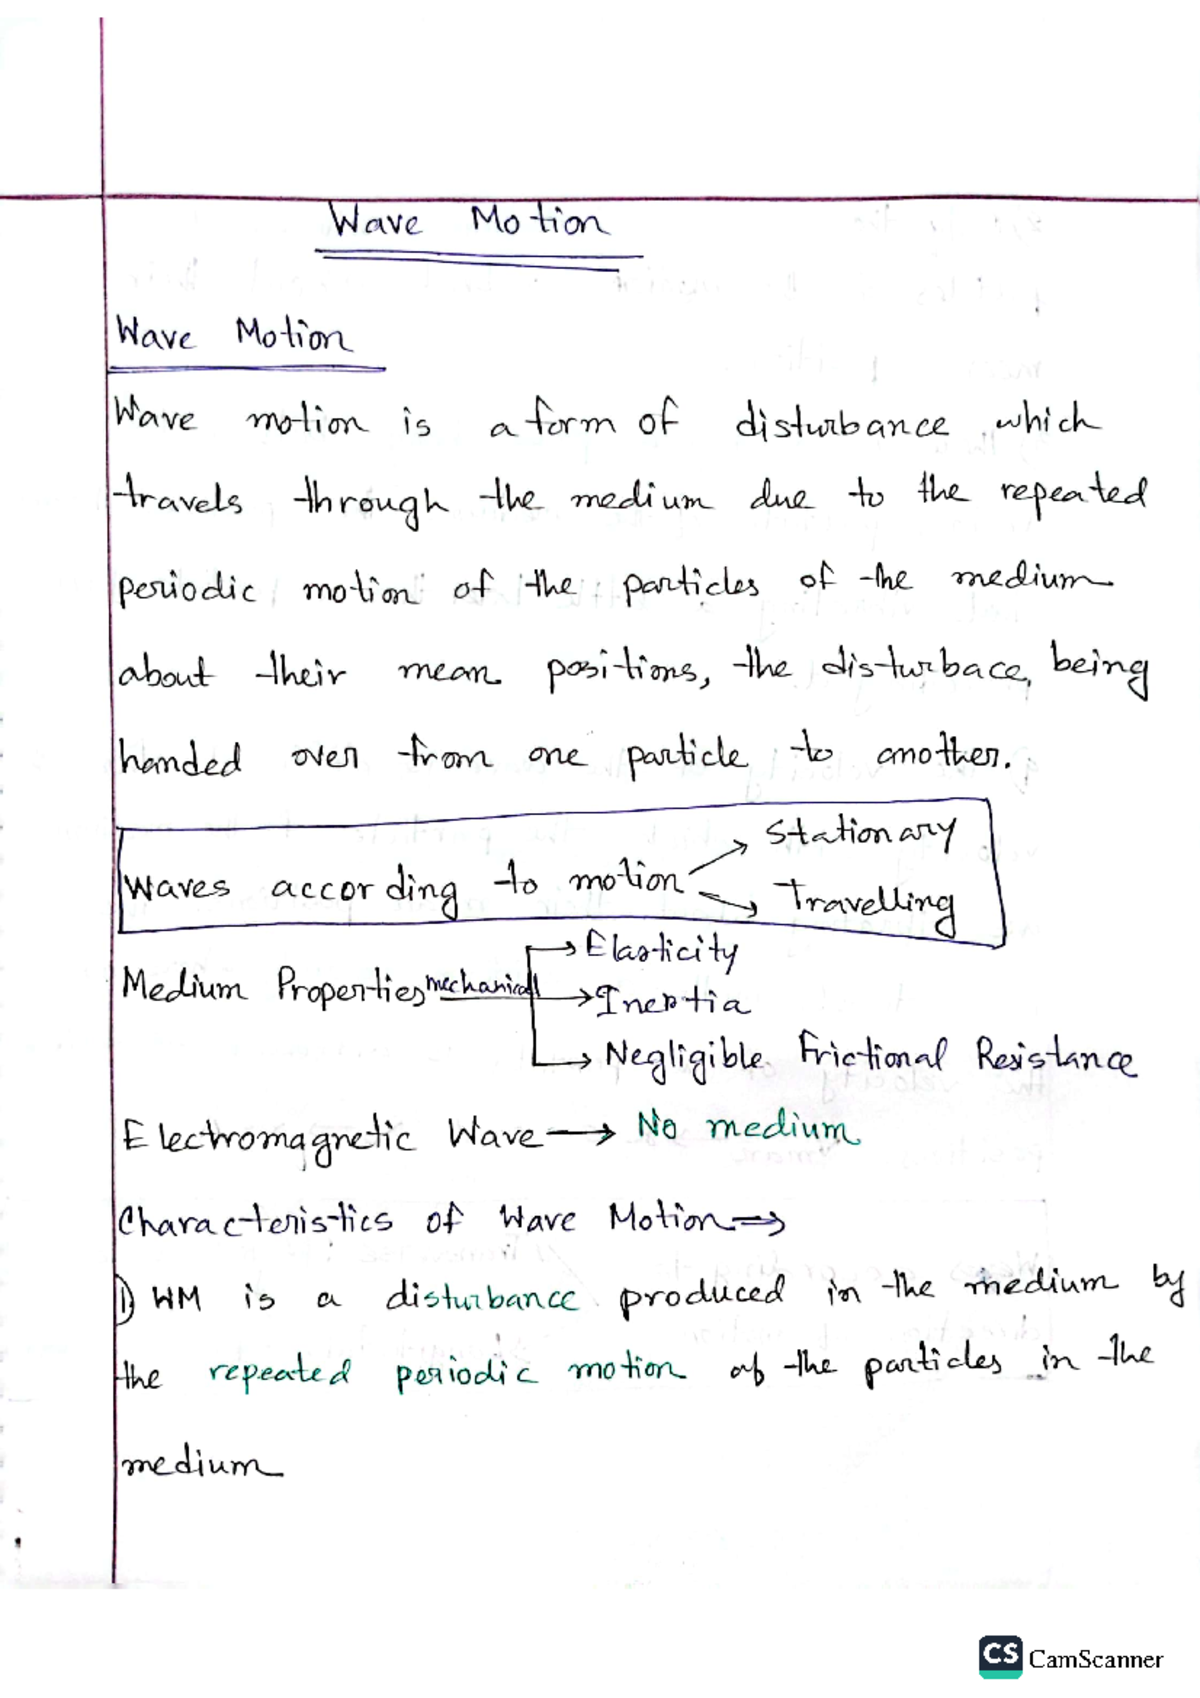 Wave Motion
Wave Motion
Wave motion is a form of disturbance which
travels through the medium due to the repeated
periodic motion of the particles of the medium
about their mean positions, the disturbace, being
handed over from one particle to another.
Stationary
Waves according to motion
Travelling
Elasticity
Medium Properties mechanical
Inertia
Negligible Frictional Resistance
Electromagnetic Wave → No medium
Characteristics of Wave Motion ⇒
1) WM is a disturbance produced in the medium by
the repeated periodic motion of the particles in the
medium
CS CamScanner